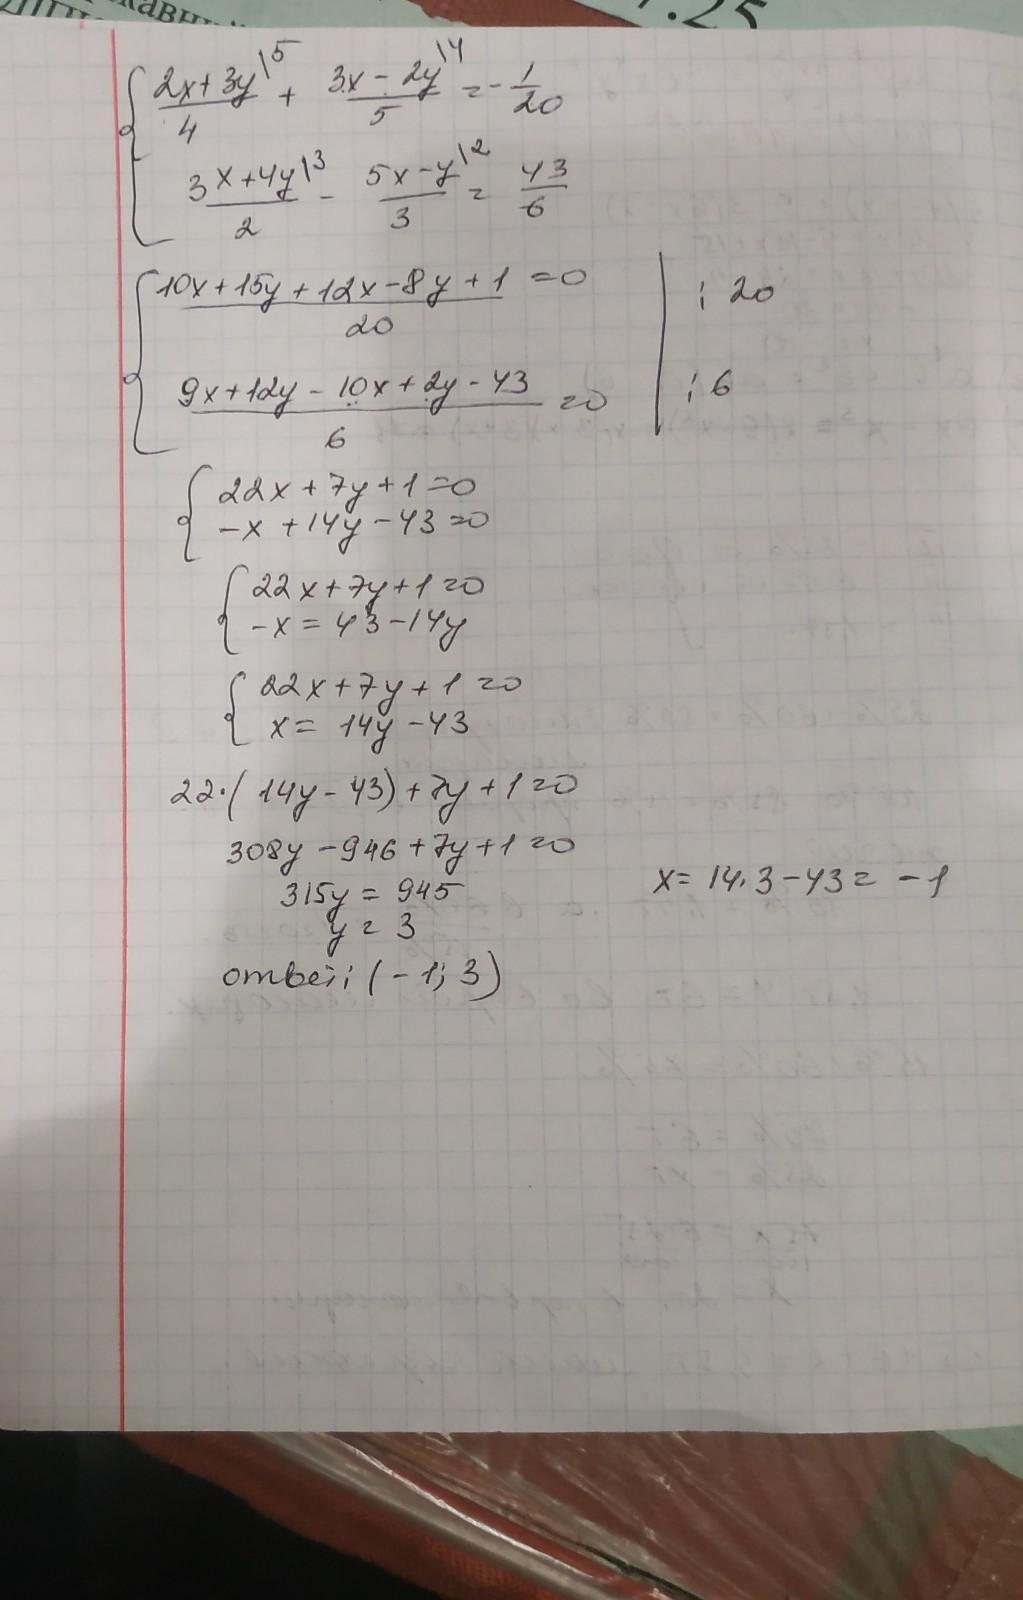 1.25
{ (2x+3y)/4 \5 + (3x-2y)/5 \4 = -1/20
(3x+4y)/2 \3 - (5x-y)/3 \2 = 43/6
{ (10x+15y+12x-8y+1)/20 = 0 | : 20
(9x+12y-10x+2y-43)/6 = 0 | : 6
{ 22x+7y+1=0
-x+14y-43=0
{ 22x+7y+1=0
-x=43-14y
{ 22x+7y+1=0
x=14y-43
22·(14y-43)+7y+1=0
308y-946+7y+1=0
315y=945
x=14·3-43=-1
y=3
ответ: (-1; 3)